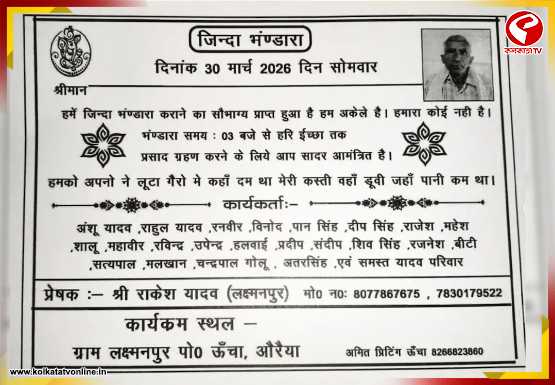 কলকাতা TV
जिन्दा भंण्डारा
दिनांक 30 मार्च 2026 दिन सोमवार
श्रीमान
हमें जिन्दा भंण्डारा कराने का सौभाग्य प्राप्त हुआ है हम अकेले है। हमारा कोई नही है।
भंण्डारा समय : 03 बजे से हरि ईच्छा तक
प्रसाद ग्रहण करने के लिये आप सादर आमंत्रित है।
हमको अपनो ने लूटा गैरो मे कहाँ दम था मेरी कस्ती वहाँ डूवी जहाँ पानी कम था।
कार्यकर्ताः-
अंशू यादव ,राहुल यादव ,रनवीर ,विनोद ,पान सिंह ,दीप सिंह ,राजेश ,महेश
,शालू ,महावीर ,रविन्द्र ,उपेन्द्र ,हलवाई ,प्रदीप ,संदीप ,शिव सिंह ,रजनेश ,बीटी
,सत्यपाल ,मलखान ,चन्द्रपाल गोलू , अतरसिंह ,एवं समस्त यादव परिवार
प्रेषक :– श्री राकेश यादव (लक्ष्मनपुर) मो0 न0: 8077867675 , 7830179522
कार्यकम स्थल –
ग्राम लक्ष्मनपुर पो0 ऊँचा, औरैया
अमित प्रिटिंग ऊँचा 8266823860
www.kolkatatvonline.in